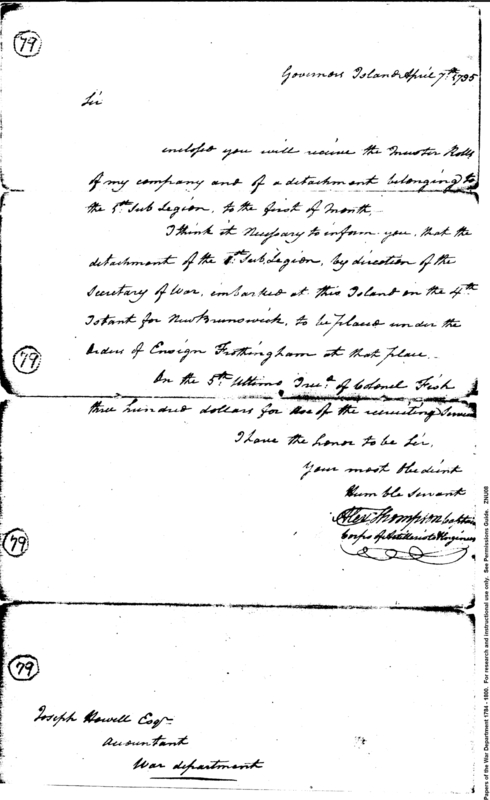 79
Governors Island April 7th. 1795
Sir
enclosed you will receive the Muster Rolls
of my company and of a detachment belonging to
the 5th Sub Legion, to the first of Month.
I think it Necessary to inform you, that the
detachment of the Sub Legion, by direction of the
Secretary of War, imbarked at this Island on the 4th
Istant for New Brunswick, to be placed under the
Orders of Ensign Frothingham at that place.
79
On the 5th Ultimo, of Colonel Fish
three hundred dollars for use of the recruiting Service
I have the honor to be Sir,
Your most Obedient
Humble Servant
Alex Thompson Captain
Corps of Artillerists & Engineers
79
79
Joseph Howell Esqr
Accountant
War department
Papers of the War Department 1784 - 1800. For research and instructional use only. See Permissions Guide. ZNU08